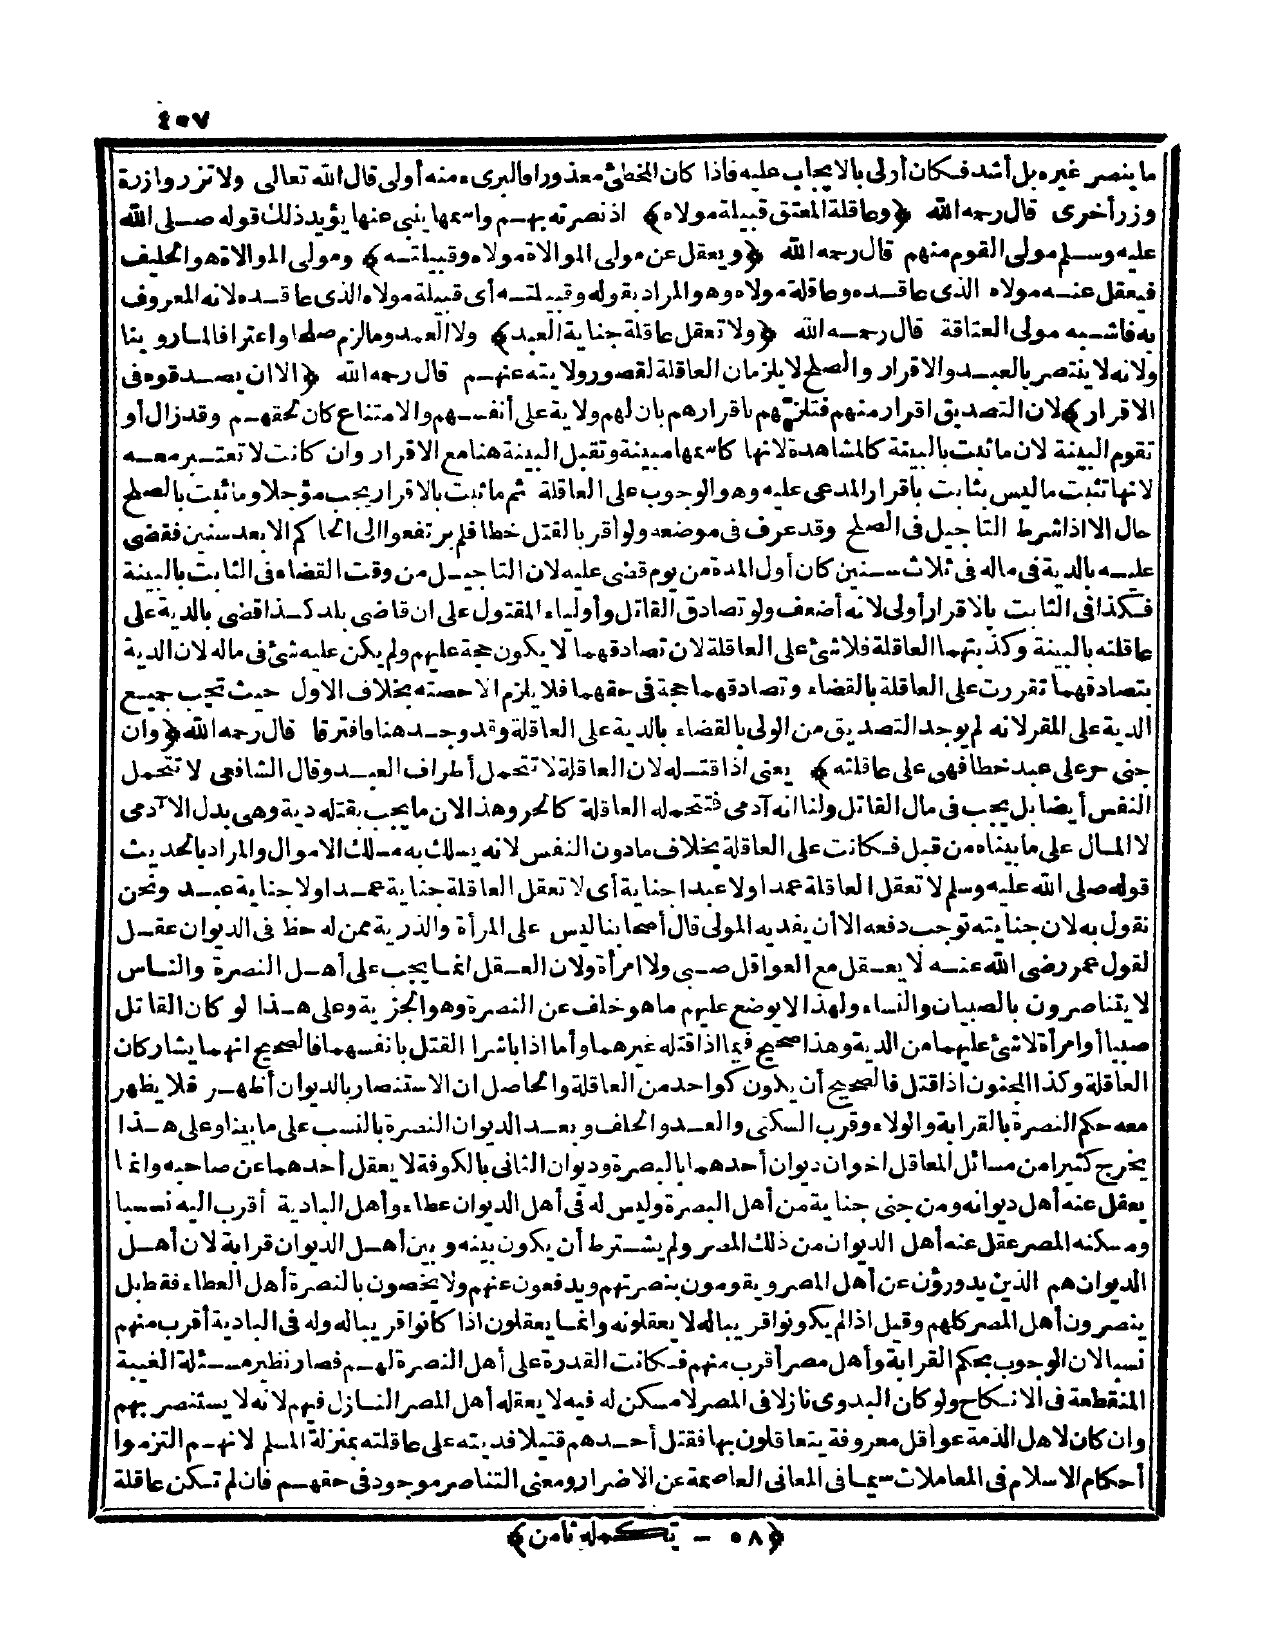 ٤٥٧
ما ينصر غيره بل أشد فكان أولى بالايجاب عليه فاذا كان المخطئ معذورا فالبرىء منه أولى قال الله تعالى ولا تزر وازرة
وزر أخرى قال رحمه الله ﴿وعاقلة المعتق قبيلة مولاه﴾ اذ نصرته بهم واسمها ينبى عنها يؤيد ذلك قوله صلى الله
عليه وسلم مولى القوم منهم قال رحمه الله ﴿ويعقل عن مولى الموالاة مولاه وقبيلته﴾ ومولى الموالاة هو الحليف
فيعقل عنه مولاه الذى عاقده وعاقلة مولاه وهو المراد بقوله وقبيلته أى قبيلة مولاه الذى عاقده لانه المعروف
به فاشبه مولى العتاقة قال رحمه الله ﴿ولا تعقل عاقلة جناية العبد﴾ ولا العمد وما لزم صلحا واعترافا لما روينا
ولانه لا ينتصر بالعبد والاقرار والصلح لا يلزمان العاقلة لقصور ولايته عنهم قال رحمه الله ﴿الا ان يصدقوه فى
الاقرار﴾ لان التصديق اقرار منهم فتلزمهم باقرارهم بان لهم ولاية على أنفسهم والامتناع كان لحقهم وقد زال أو
تقوم البينة لان ما ثبت بالبينة كالمشاهدة لانها كاسمها مبينة وتقبل البينة هنا مع الاقرار وان كانت لا تعتبر معه
لانها تثبت ما ليس بثابت باقرار المدعى عليه وهو الوجوب على العاقلة ثم ما ثبت بالاقرار يجب مؤجلا وما ثبت بالصلح
حال الا اذا شرط التأجيل فى الصلح وقد عرف فى موضعه ولو أقر بالقتل خطا فلم يرتفعوا الى الحاكم الا بعد سنين فقضى
عليه بالدية فى ماله فى ثلاث سنين كان أول المدة من يوم قضى عليه لان التأجيل من وقت القضاء فى الثابت بالبينة
فكذا فى الثابت بالاقرار أولى لانه أضعف ولو تصادق القاتل وأولياء المقتول على ان قاضى بلد كذا قضى بالدية على
عاقلته بالبينة وكذبتهما العاقلة فلا شئ على العاقلة لان تصادقهما لا يكون حجة عليهم ولم يكن عليه شئ فى ماله لان الدية
بتصادقهما تقررت على العاقلة بالقضاء وتصادقهما حجة فى حقهما فلا يلزم الا حصته بخلاف الاول حيث تجب جميع
الدية على المقر لانه لم يوجد التصديق من الولى بالقضاء بالدية على العاقلة وقد وجد هنا فافترقا قال رحمه الله ﴿وان
جنى حر على عبد خطا فهى على عاقلته﴾ يعنى اذا قتله لان العاقلة لا تتحمل أطراف العبد وقال الشافعى لا تتحمل
النفس أيضا بل يجب فى مال القاتل ولنا انه آدمى فتتحمله العاقلة كالحر وهذا لان ما يجب بقتله دية وهى بدل الآدمى
لا المال على ما بيناه من قبل فكانت على العاقلة بخلاف ما دون النفس لانه يسلك به مسلك الاموال والمراد بالحديث
قوله صلى الله عليه وسلم لا تعقل العاقلة عمدا ولا عبدا جناية أى لا تعقل العاقلة جناية عمدا ولا جناية عبد ونحن
نقول به لان جنايته توجب دفعه الا أن يفديه المولى قال أصحابنا ليس على المرأة والذرية ممن له حظ فى الديوان عقل
لقول عمر رضى الله عنه لا يعقل مع العواقل صبى ولا امرأة ولان العقل انما يجب على أهل النصرة والناس
لا يتناصرون بالصبيان والنساء ولهذا لا يوضع عليهم ما هو خلف عن النصرة وهو الجزية وعلى هذا لو كان القاتل
صبيا أو امرأة لا شئ عليهما من الدية وهذا صحيح فيما اذا قتله غيرهما وأما اذا باشرا القتل بانفسهما فالصحيح انهما يشاركان
العاقلة وكذا المجنون اذا قتل فالصحيح أن يكون كواحد من العاقلة والحاصل ان الاستنصار بالديوان أظهر فلا يظهر
معه حكم النصرة بالقرابة والولاء وقرب السكنى والعد والحلف وبعد الديوان النصرة بالنسب على ما بينا وعلى هذا
يخرج كثيرا من مسائل المعاقل اخوان ديوان أحدهما بالبصرة وديوان الثانى بالكوفة لا يعقل أحدهما عن صاحبه وانما
يعقل عنه أهل ديوانه ومن جنى جناية من أهل البصرة وليس له فى أهل الديوان عطاء وأهل البادية أقرب اليه نسبا
ومسكنه المصر عقل عنه أهل الديوان من ذلك المصر ولم يشترط أن يكون بينه وبين أهل الديوان قرابة لان أهل
الديوان هم الذين يدورؤن عن أهل المصر ويقومون بنصرتهم ويدفعون عنهم ولا يخصون بالنصرة أهل العطاء فقط بل
ينصرون أهل المصر كلهم وقيل اذا لم يكونوا قريبا له لا يعقلونه وانما يعقلون اذا كانوا قريبا له وله فى البادية أقرب منهم
نسبا لان الوجوب بحكم القرابة وأهل مصر أقرب منهم فكانت القدرة على أهل النصرة لهم فصار نظير مسئلة الغيبة
المنقطعة فى الانكاح ولو كان البدوى نازلا فى المصر لا مسكن له فيه لا يعقله أهل المصر النازل فيهم لانه لا يستنصر بهم
وان كان لاهل الذمة عواقل معروفة يتعاقلون بها فقتل أحدهم قتيلا فديته على عاقلته بمنزلة المسلم لانهم التزموا
أحكام الاسلام فى المعاملات سيما فى المعانى العاصمة عن الاضرار ومعنى التناصر موجود فى حقهم فان لم تكن عاقلة
﴿٥٨ – تكمله ثامن﴾